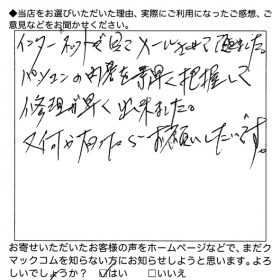 ◆当店をお選びいただいた理由、実際にご利用になったご感想、ご
意見などをお聞かせください。
インターネットを見てメールさせて頂きました。
パソコンの内容を素早く把握して
修理が早く出来ました。
又何か有ったらお願いしたいです。
お寄せいただいたお客様の声をホームページなどで、まだク
マックコムを知らない方にお知らせしようと思います。よろ
しいでしょうか? ☑はい □いいえ